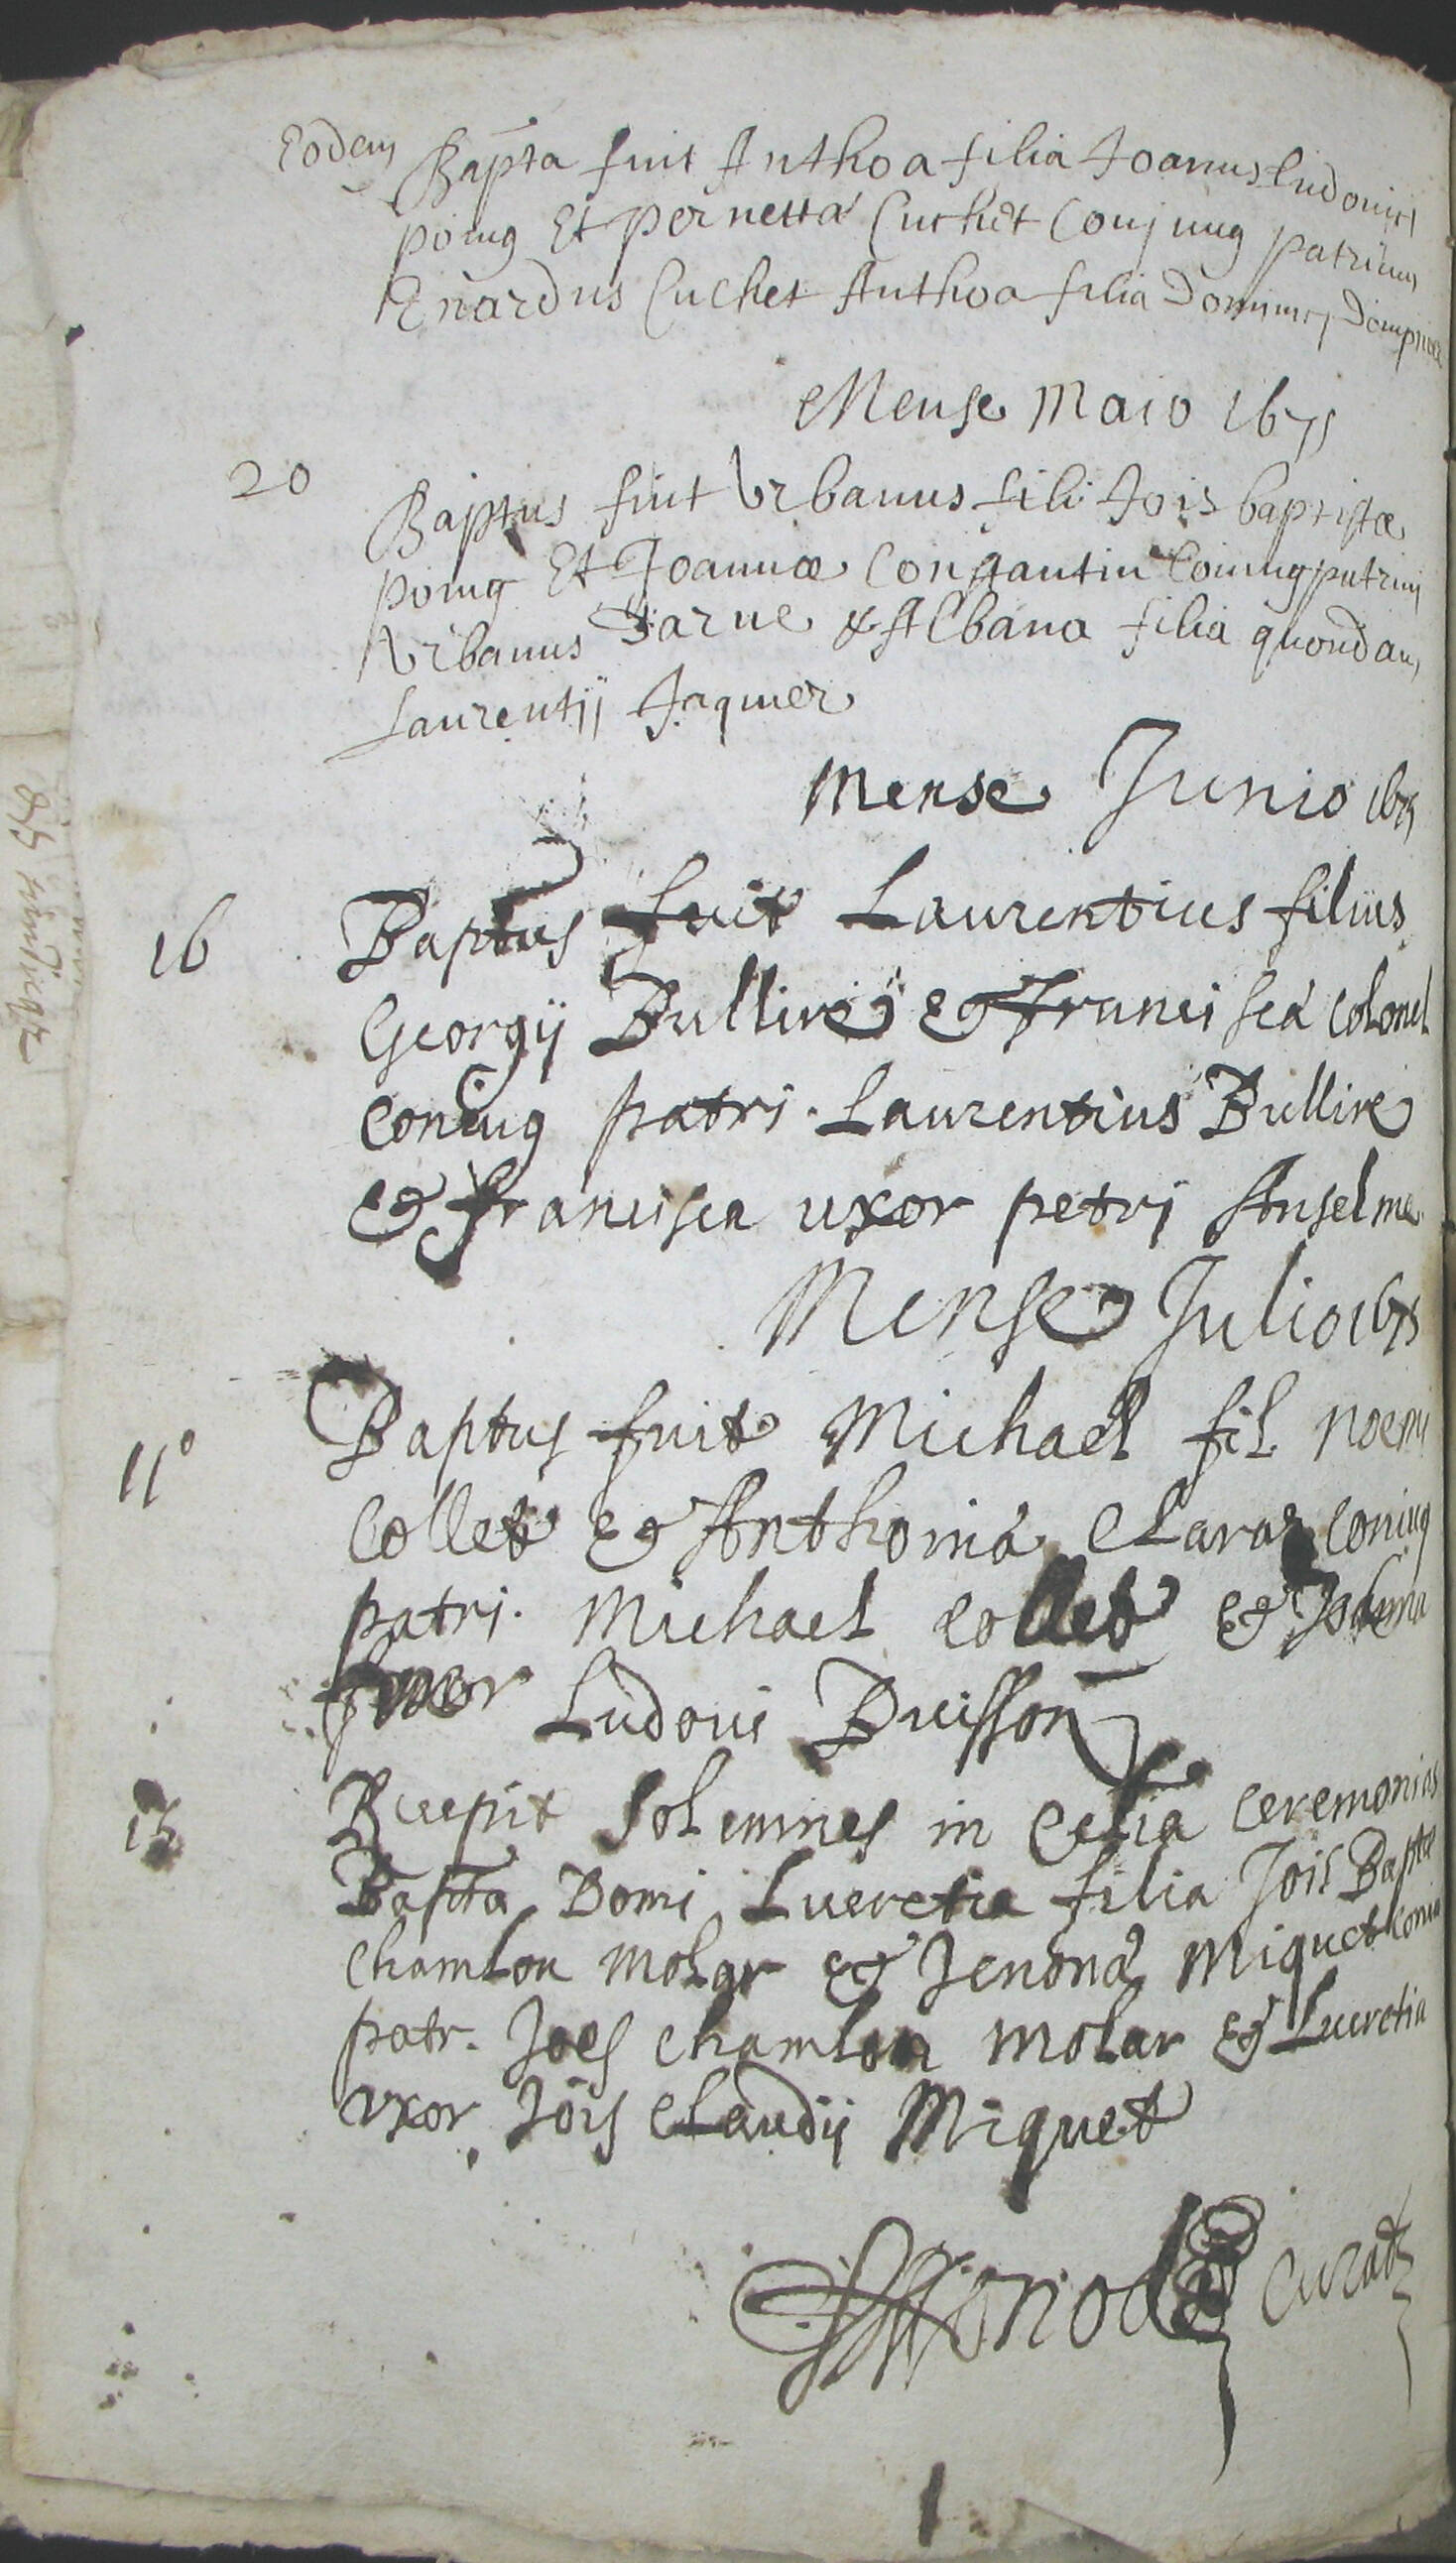 Eodem Bapta fuit Anthoa filia Joannis Ludovici
poing Et pernetta Cuchet Conjung patrinus
Enardus Cuchet Anthoa filia Dominici
Mense Maio 1675
20 Baptus fuit Urbanus fili Jois baptistæ
poing Et Joannæ Constantin Coniug patrini
Urbanus Darne & Albana filia quondam
Laurentij Jaquier
Mense Junio 1675
16 Baptus fuit Laurentius filius
Georgij Bulline & Francisca Colonel
coniug patri. Laurentius Bulline
& francisca uxor petri Anselme
Mense Julio 1675
11° Baptus fuit Michael fil noem
Collet & Anthonia Claraz coniug
patri. Michael Collet &
uxor Ludovi Buisson
15 Recepit solemnes in Ce͠lia ceremonias
Bapta Domi Lucretia filia Jois Baptæ
chamlon molar & Jenona Miquet coniu
patr. Joes chamlon molar & Lucretia
uxor Jois claudij Miquet
curat